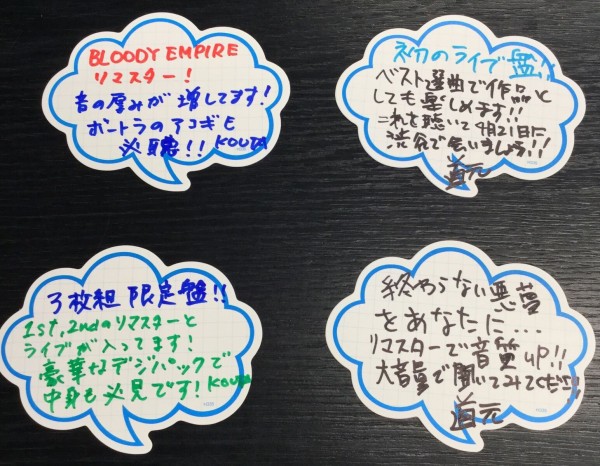 BLOODY EMPIRE
リマスター!
音の厚みが増してます!
ボントラのアコギも
必聴!! KOUTA
初のライブ盤!!
ベスト選曲で作品と
しても楽しめます!!
これを聴いて9月21日に
渋谷で会いましょう!!
道元
3枚組 限定盤!!
1st,2ndのリマスターと
ライブが入ってます!
豪華なデジパックで
中身も必見です! KOUTA
終わらない悪夢
をあなたに...
リマスターで音質UP!!
大音量で聞いてみてください!!
道元